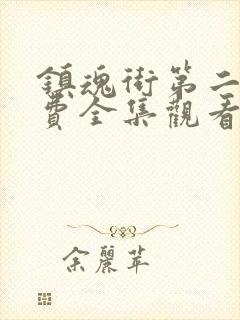 鎮魂街第二
費全集觀看
余麗苹